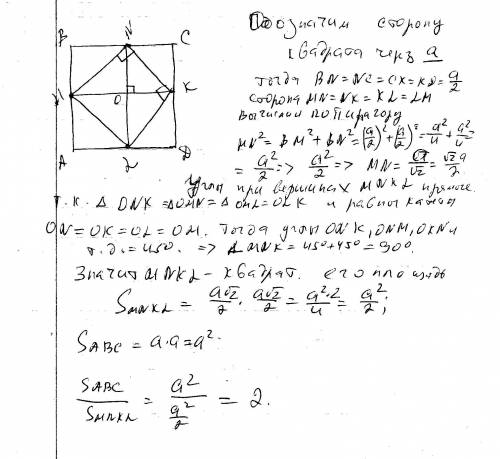 B N C
M O K
A L D
Обозначим сторону
квадрата через a
тогда BN=NC=CK=KD=a/2
сторона MN=NK=KL=LM
вычислим по Пифагору
MN²=BM²+BN²=(a/2)²+(a/2)²=a²/4+a²/4=
=a²/2=> a²/2 => MN=√a²/√2=√2a/2
углы при вершинах MNKL прямые.
т.к. Δ ONK=ΔOMN=ΔOML=OLK и равны катеты
ON=OK=OL=OM. Тогда углы ONK, ONM, OKN и
т.д.=45°. => ∠MNK=45°+45°=90°.
Значит MNKL- квадрат. его площадь
S MNKL = a√2/2 · a√2/2 = a²·2/4 = a²/2;
S ABC = a·a=a².
S ABC / S MNKL = a² / a²/2 = 2.